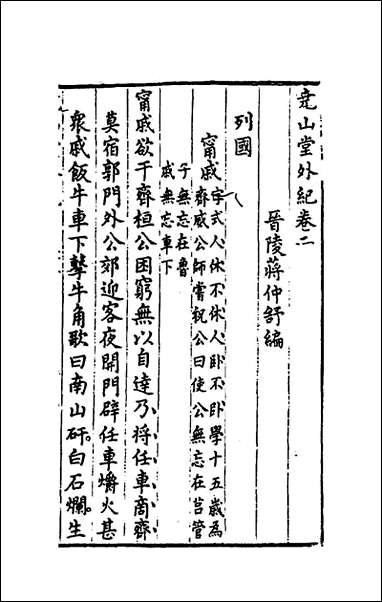 堯山堂外紀卷二
晉陵蔣仲舒編
列國
甯戚字式人休不休人卧不卧學十五歲為
齊威公師嘗祝公曰使公無忘在莒管
子無忘在魯
戚無忘車下
甯戚欲干齊桓公困窮無以自達乃將任車商齊
莫宿郭門外公郊迎客夜開門辟任車爝火甚
衆戚飯牛車下擊牛角歌曰南山矸白石爛生